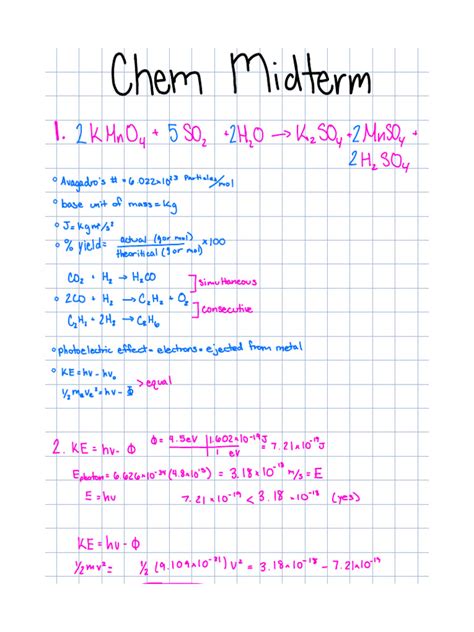 Chem Midterm
1. 2KMnO₄ + 5SO₂ + 2H₂O → K₂SO₄ + 2MnSO₄ +
2H₂SO₄
° Avagadro's # = 6.022x10²³ particles/mol
° base unit of mass = kg
° J = kgm²/s²
° % yield = actual (g or mol) / theoritical (g or mol) x100
CO₂ + H₂ → H₂CO ] simultaneous
° 2CO + H₂ → C₂H₂ + O₂
C₂H₂ + 2H₂ → C₂H₆ ] consecutive
° photoelectric effect = electrons = ejected from metal
° KE = hν - hν₀
½mₑvₑ² = hν - Φ > equal
2. KE = hν - Φ Φ = 4.5eV | 1.602x10⁻¹⁹J / 1 eV = 7.21x10⁻¹⁹J
E photon = 6.626x10⁻³⁴(4.8x10¹⁵) = 3.18x10⁻¹⁸ m/s = E
E = hν 7.21x10⁻¹⁹ < 3.18x10⁻¹⁸ (yes)
KE = hν - Φ
½mv² = ½(9.109x10⁻³¹)v² = 3.18x10⁻¹⁸ - 7.21x10⁻¹⁹